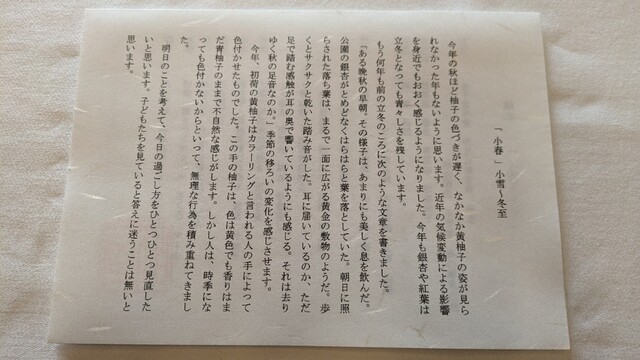 「小春」小雪～冬至
今年の秋ほど柚子の色づきが遅く、なかなか黄柚子の姿が見ら
れなかった年もないように思います。近年の気候変動による影響
を身近でもおおく感じるようになりました。今年も銀杏や紅葉は
立冬となっても青々しさを残しています。
もう何年も前の立冬のころに次のような文章を書きました。
「ある晩秋の早朝。その様子は、あまりにも美しく息を飲んだ。
公園の銀杏がとめどなくはらはらと葉を落としていた。朝日に照
らされた落ち葉は、まるで一面に広がる黄金の敷物のようだ。歩
くとサクサクと乾いた踏み音がした。耳に届いているのか、ただ
足で踏む感触が耳の奥で響いているようにも感じる。それは去り
ゆく秋の足音なのか。」季節の移ろいの変化を感じさせます。
今年、初荷の黄柚子はカラーリングと言われる人の手によって
色付かせたものでした。この手の柚子は、色は黄色でも香りはま
だ青柚子のままで不自然な感じがします。しかし人は、時季にな
っても色付かないからといって、無理な行為を積み重ねてきまし
た。
明日のことを考えて、今日の過ごし方をひとつひとつ見直した
いと思います。子どもたちを見ていると答えに迷うことは無いと
思います。